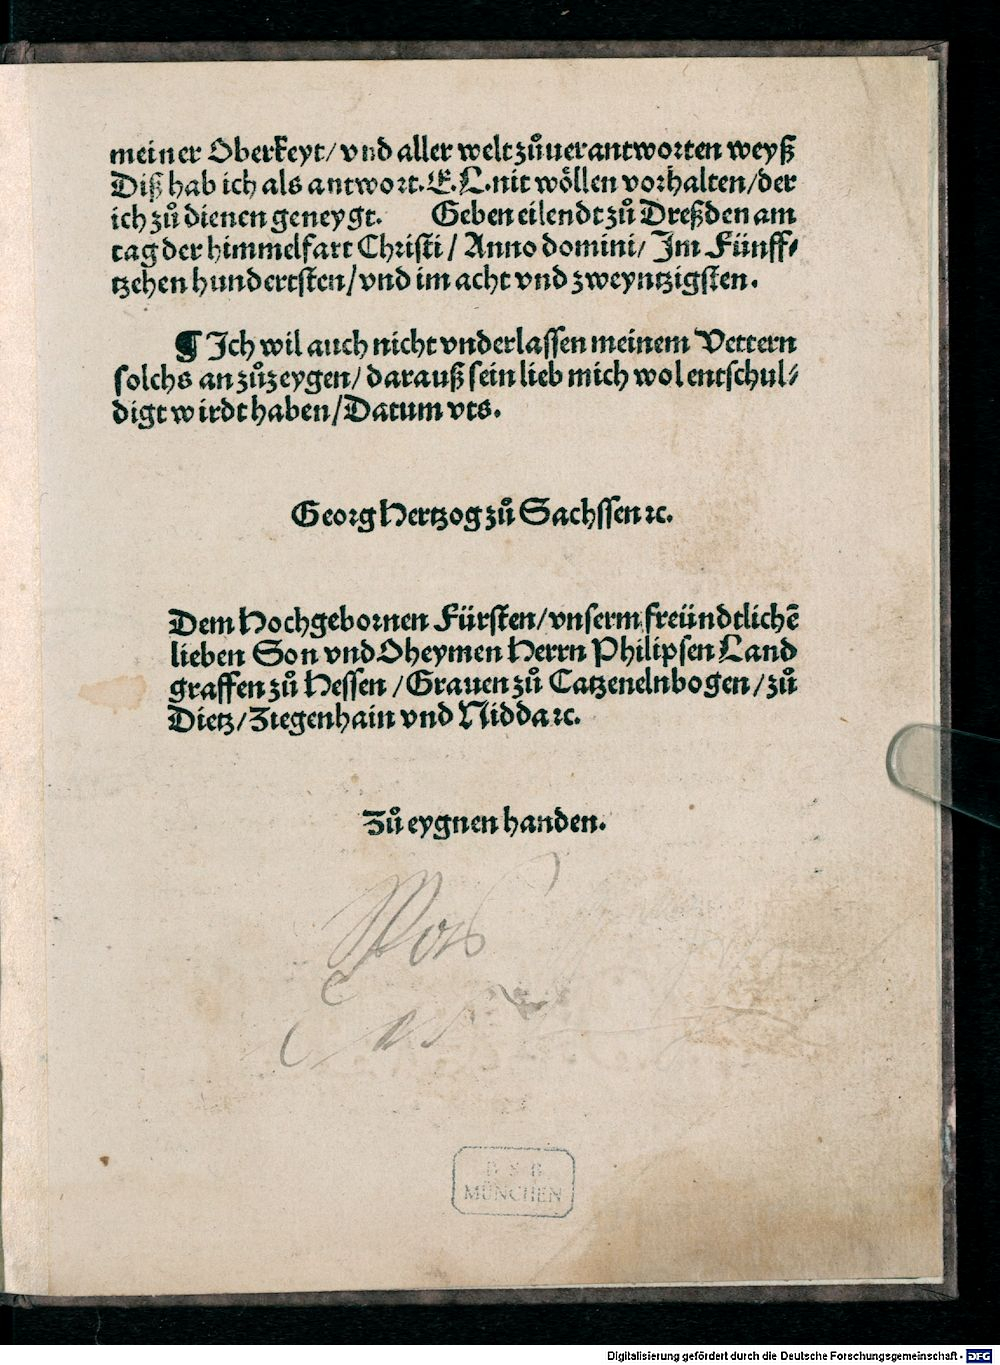 meiner Oberkeyt/ vnd aller welt zůuerantworten weyß
Diß hab ich als antwort. E. L. nit wöllen vorhalten/ der
ich zů dienen geneygt. Geben eilendt zů Dreßden am
tag der himmelfart Christi/ Anno domini/ Im Fünff⸗
tzehen hundertsten/ vnd im acht vnd zweyntzigsten.
¶ Ich wil auch nicht vnderlassen meinem Vettern
solchs anzůzeygen/ darauß sein lieb mich wol entschul⸗
digt wirdt haben/ Datum vts.
Georg Hertzog zů Sachssen ꝛc.
Dem Hochgebornen Fürsten/ vnserm freündtlichē
lieben Son vnd Oheymen Herrn Philipsen Land
graffen zů Hessen/ Grauen zů Catzenelnbogen/ zů
Dietz/ Ziegenhain vnd Nidda ꝛc.
Zů eygnen handen.
B S B
MÜNCHEN
Digitalisierung gefördert durch die Deutsche Forschungsgemeinschaft - DFG